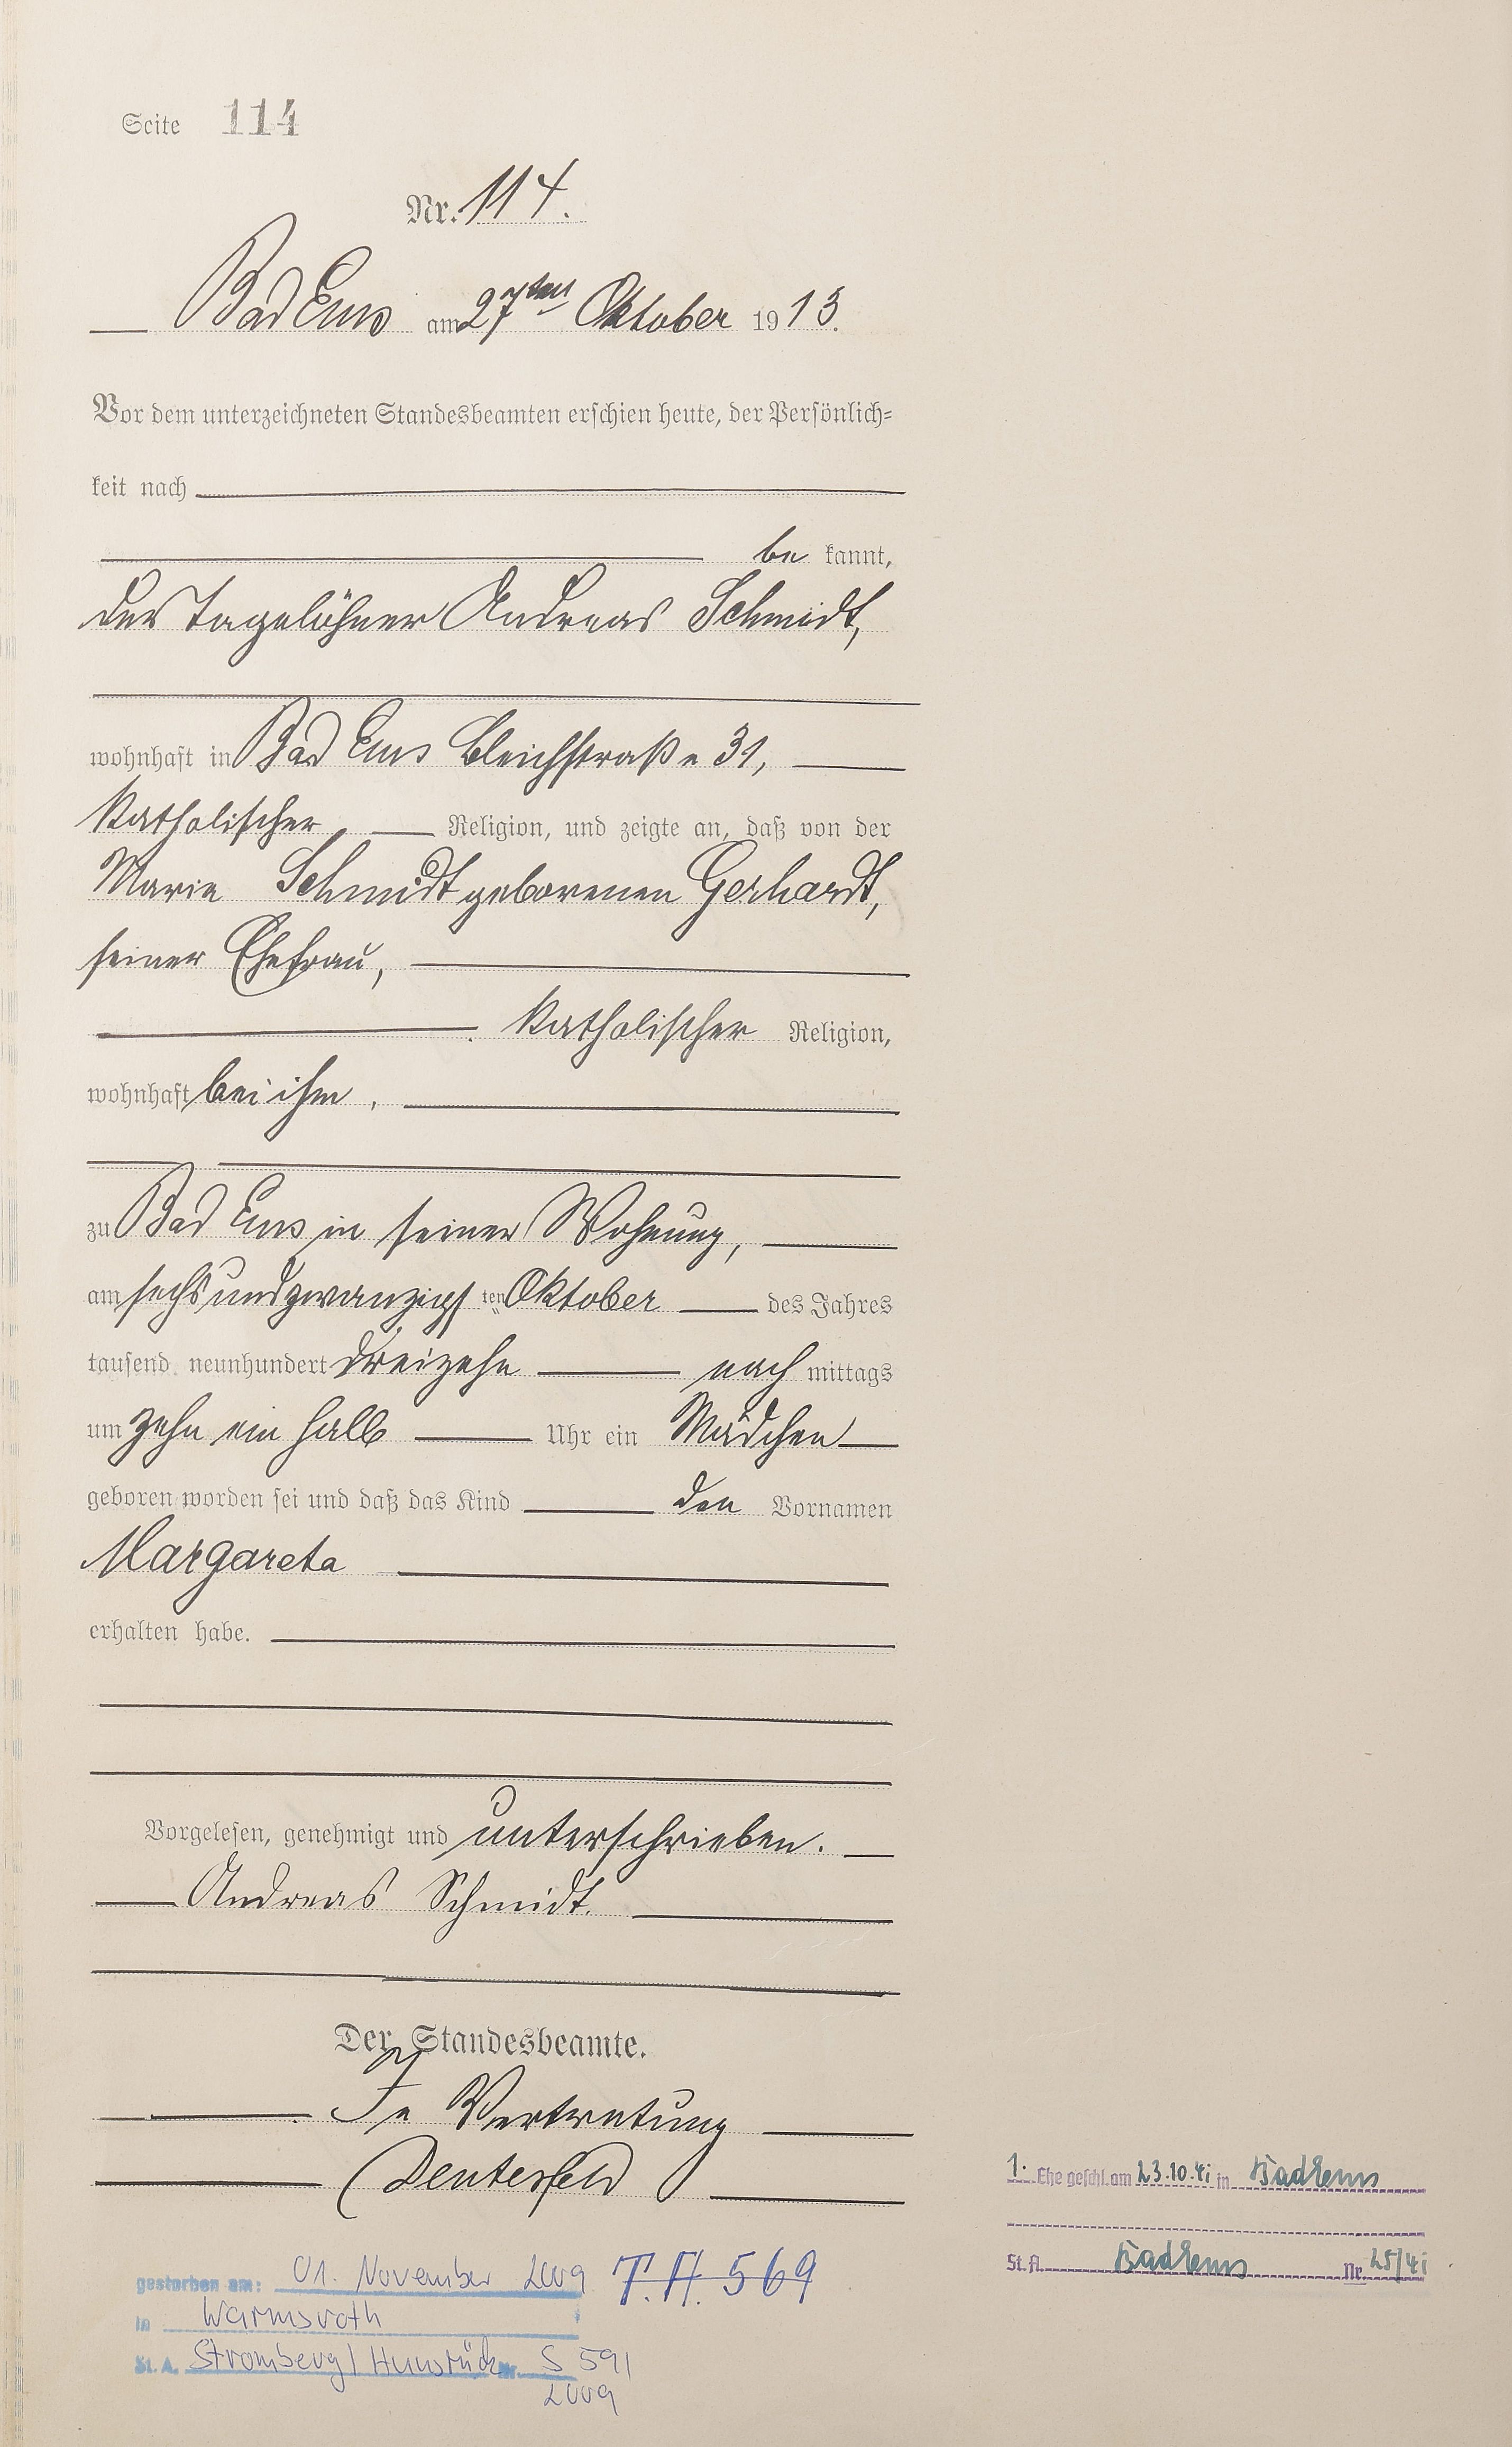 Seite 114
Nr. 114.
Bad Ems am 27ten Oktober 1913.
Vor dem unterzeichneten Standesbeamten erschien heute, der Persönlich-
keit nach
be kannt,
der Tagelöhner Andreas Schmidt,
wohnhaft in Bad Ems Bleichstraße 31,
katholischer Religion, und zeigte an, daß von der
Marie Schmidt geborenen Gerhardt,
seiner Ehefrau,
katholischer Religion,
wohnhaft bei ihm,
zu Bad Ems in seiner Wohnung,
am sechsundzwanzigsten Oktober des Jahres
tausend neunhundert dreizehn nachmittags
um zehn ein halb Uhr ein Mädchen
geboren worden sei und daß das Kind den Vornamen
Margareta
erhalten habe.
Vorgelesen, genehmigt und unterschrieben.
Andreas Schmidt.
Der Standesbeamte.
In Vertretung
Deutesfeld
1. Ehe geschl. am 23.10.41 in Bad Ems
St.A. Bad Ems Nr. 25/41
gestorben am: 01. November 2009 T.A. 569
in Warmsroth
St. A. Stromberg/Hunsrück Nr. S 591
2009